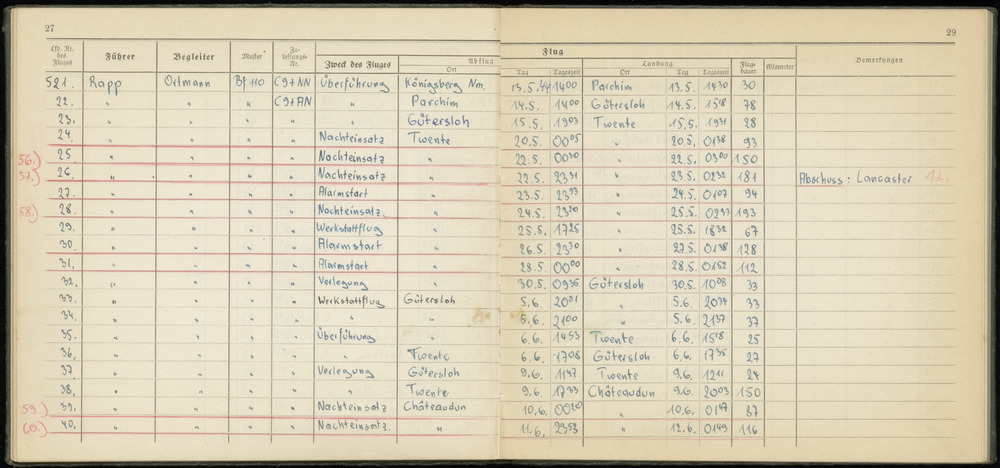 27
29
Lfd. Nr. des Fluges Führer Begleiter Muster Zulassungs-Nr. Zweck des Fluges Abflug Ort Tag Tageszeit Flug Landung Ort Tag Tageszeit Flugdauer Kilometer Bemerkungen
521. Rapp Ortmann Bf 110 C9+NN Überführung Königsberg Nm. 13.5.44 1400 Parchim 13.5. 1430 30
22. " " " C9+AN " Parchim 14.5. 1400 Gütersloh 14.5. 1518 78
23. " " " " " Gütersloh 15.5. 1903 Twente 15.5. 1931 28
24. " " " " Nachteinsatz Twente 20.5. 0005 " 20.5. 0138 93
56.) 25. " " " " Nachteinsatz " 22.5. 0030 " 22.5. 0300 150
57.) 26. " " " " Nachteinsatz " 22.5. 2331 " 23.5. 0232 181 Abschuss: Lancaster 12.
27. " " " " Alarmstart " 23.5. 2333 " 24.5. 0107 94
58.) 28. " " " " Nachteinsatz. " 24.5. 2320 " 25.5. 0233 193
29. " " " " Werkstattflug " 25.5. 1725 " 25.5. 1832 67
30. " " " " Alarmstart " 26.5. 2330 " 27.5. 0138 128
31. " " " " Alarmstart " 28.5. 0000 " 28.5. 0152 112
32. " " " " Verlegung " 30.5. 0935 Gütersloh 30.5. 1008 33
33. " " " " Werkstattflug Gütersloh 5.6. 2001 " 5.6. 2034 33
34. " " " " " " 5.6. 2100 " 5.6. 2137 37
35. " " " " Überführung " 6.6. 1453 Twente 6.6. 1518 25
36. " " " " " Twente 6.6. 1708 Gütersloh 6.6. 1735 27
37 " " " " Verlegung Gütersloh 9.6. 1147 Twente 9.6. 1211 24
38. " " " " " Twente 9.6. 1733 Châteaudun 9.6. 2003 150
59.) 39. " " " " Nachteinsatz Châteaudun 10.6. 0020 " 10.6. 0147 87
60.) 40. " " " " Nachteinsatz. " 11.6. 2353 " 12.6. 0149 116